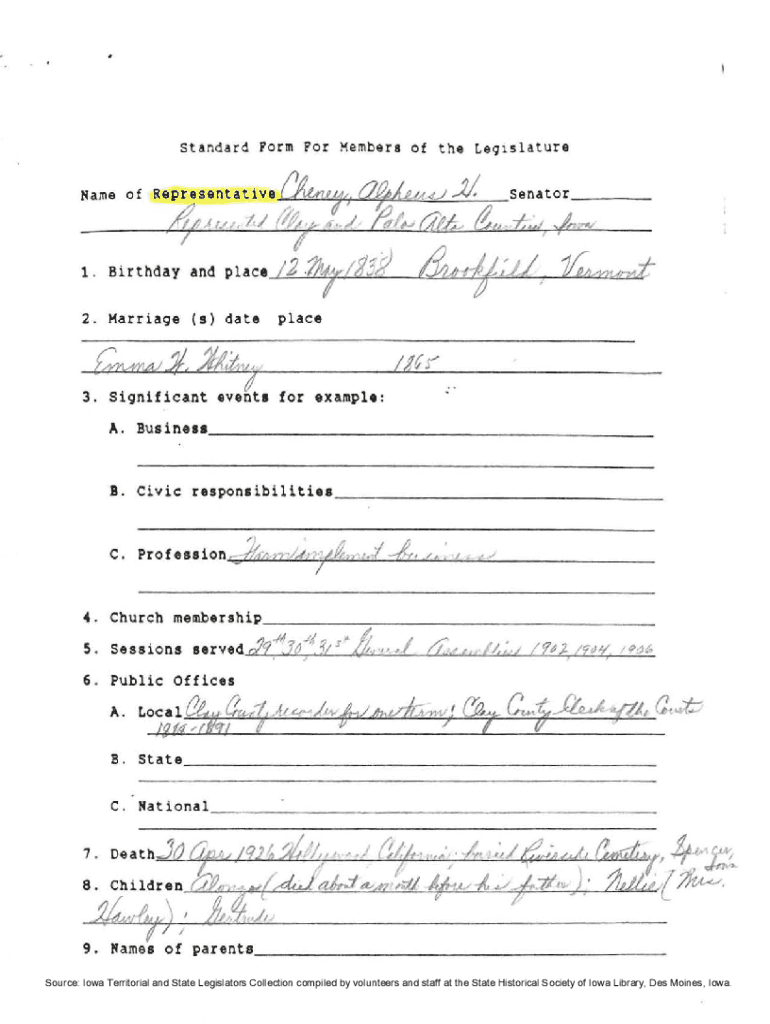 Standard Form For Members of the Legislature
Name of Representative Cheney, Alpheus H. Senator
Represented Clay and Palo Alto Counties, Iowa
1. Birthday and place 12 May 1838 Brookfield, Vermont
2. Marriage (s) date place
Emma H. Whitney 1865
3. Significant events for example:
A. Business
B. Civic responsibilities
C. Profession Farm implement business
4. Church membership
5. Sessions served 29th, 30th, 31st General Assemblies 1902, 1904, 1906
6. Public Offices
A. Local Clay County recorder for one term; Clay County Clerk of the Courts
-1891
B. State
C. National
7. Death 30 Apr 1926 Hollywood, California; buried Riverside Cemetery, Spencer,
Iowa
8. Children Alonzo (died about a month before his father); Nellie (Mrs.
Hawley); Gertrude
9. Names of parents
Source: Iowa Territorial and State Legislators Collection compiled by volunteers and staff at the State Historical Society of Iowa Library, Des Moines, Iowa.